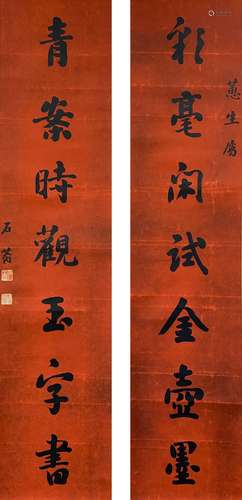 蕙生屬
彩毫閑試金壺墨
青案時觀玉字書
石